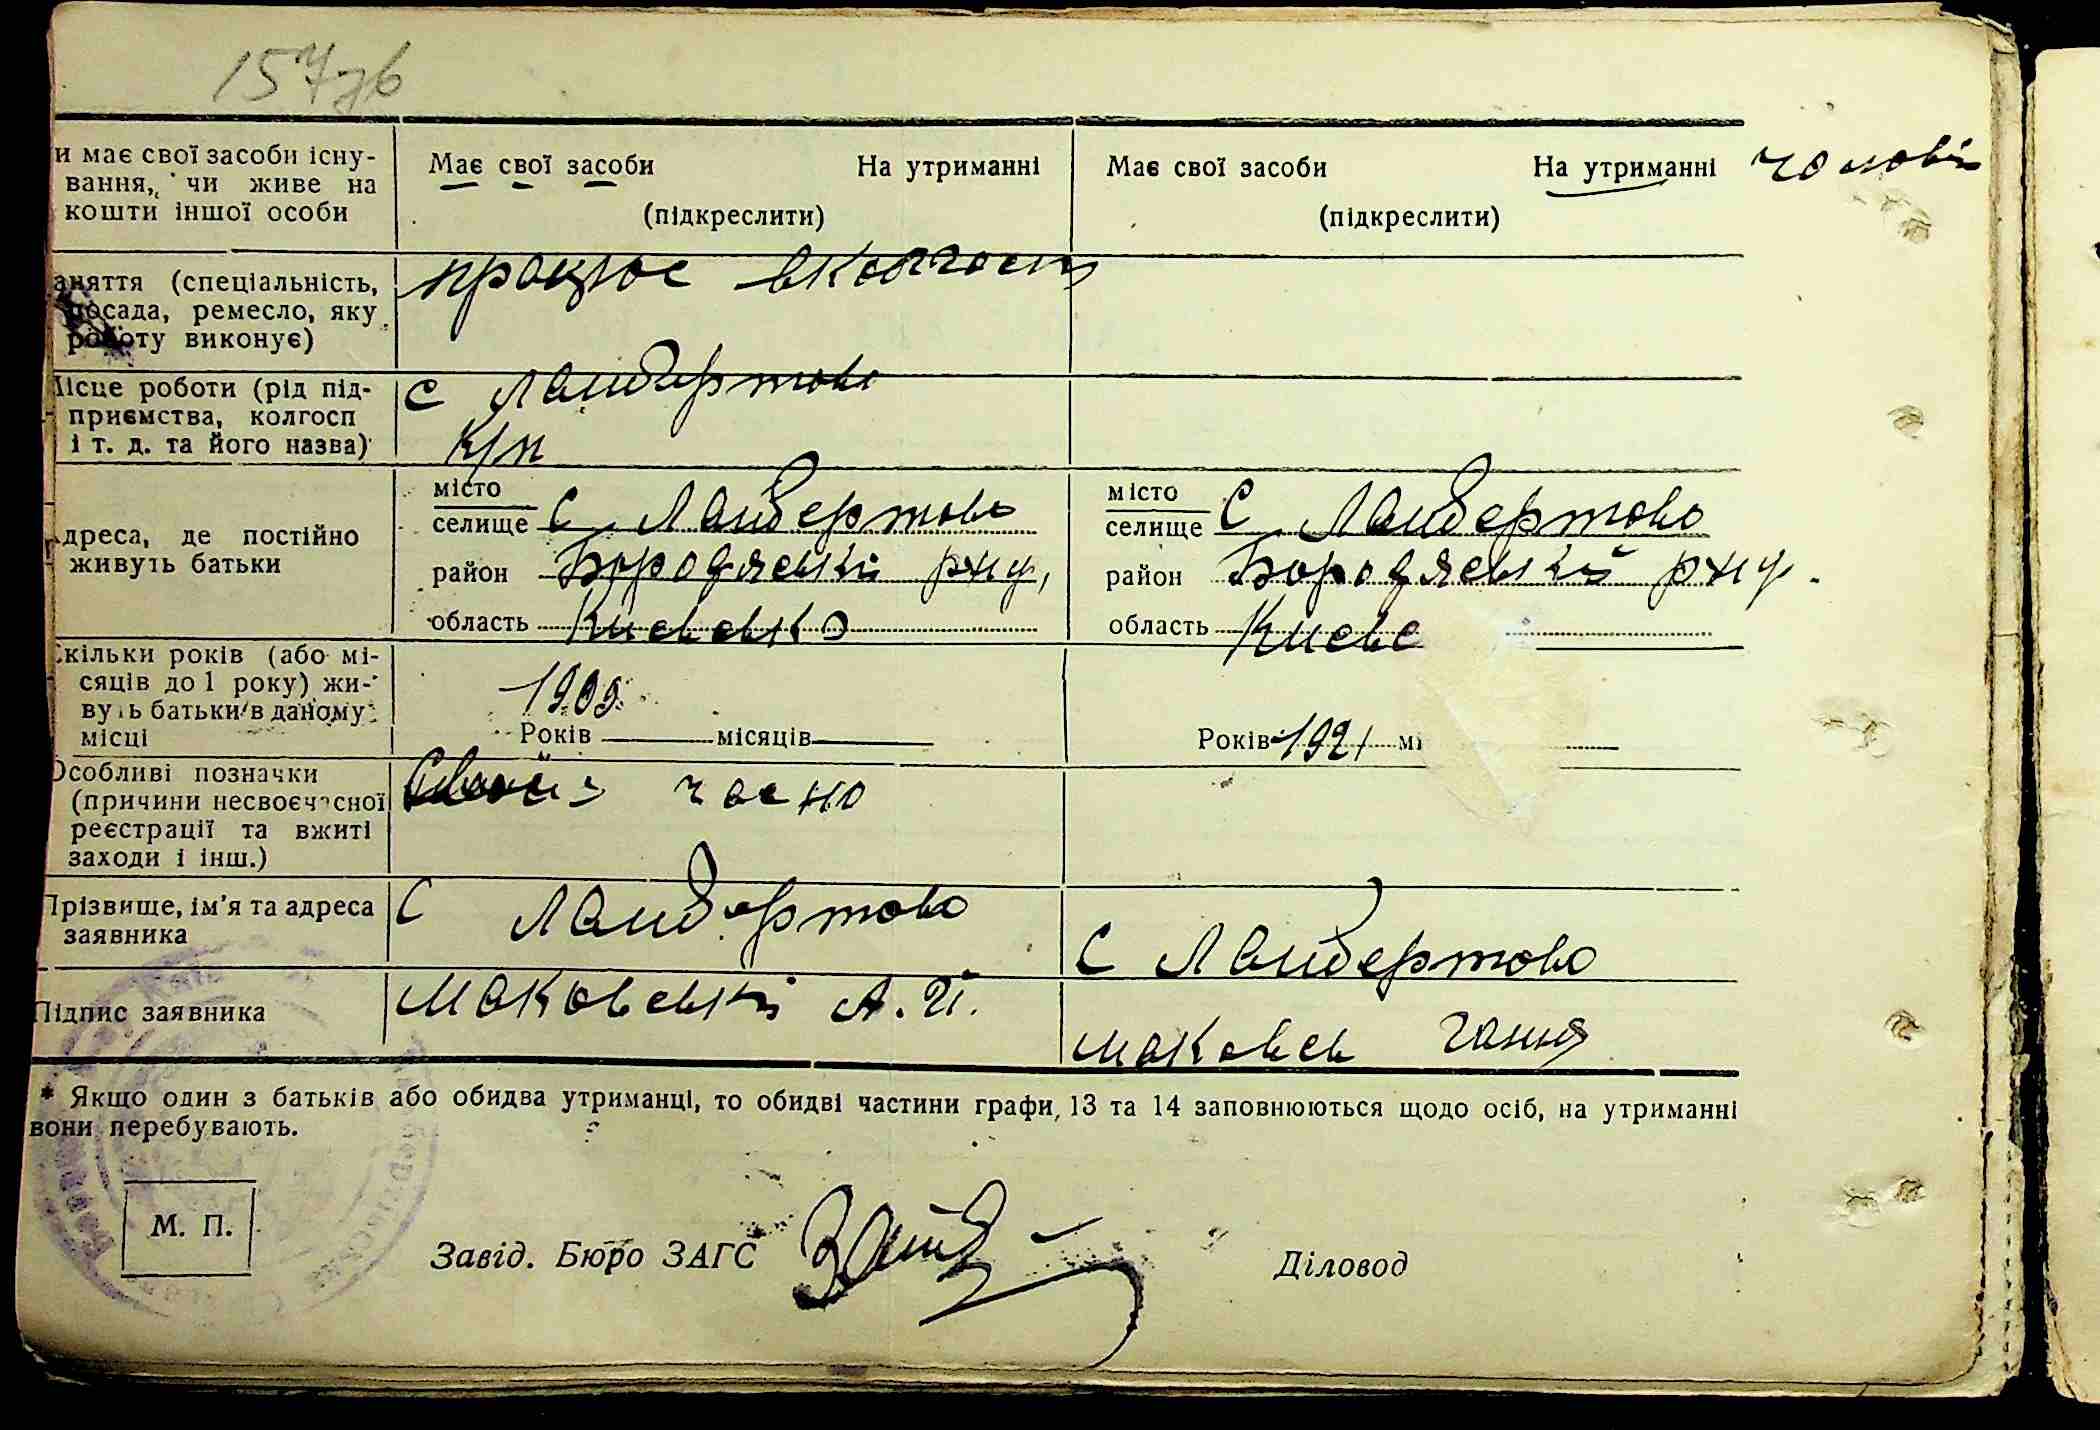 157зв
и має свої засоби існу-
вання, чи живе на
кошти іншої особи
Має свої засоби На утриманні
(підкреслити)
Має свої засоби На утриманні чоловік
(підкреслити)
аняття (спеціальність,
посада, ремесло, яку
роботу виконує)
працює в колгоспі
Місце роботи (рід під-
приємства, колгосп
і т. д. та його назва)
С Ландертово
к/п
дреса, де постійно
живуть батьки
місто
селище С Ландертово
район Бородянский рну,
область Киевско
місто
селище С Ландертово
район Бородянский рну.
область Киевс
Скільки років (або мі-
сяців до 1 року) жи-
вуть батьки в даному
місці
1909.
Років місяців
Років 1921 мі
Особливі позначки
(причини несвоєчасної
реєстрації та вжиті
заходи і інш.)
часно
Прізвище, ім'я та адреса
заявника
С Ландертово
С Ландертово
Підпис заявника
Маковскі А. И.
Маковсь Гання
* Якщо один з батьків або обидва утриманці, то обидві частини графи, 13 та 14 заповнюються щодо осіб, на утриманні
вони перебувають.
М. П.
Завід. Бюро ЗАГС
Діловод